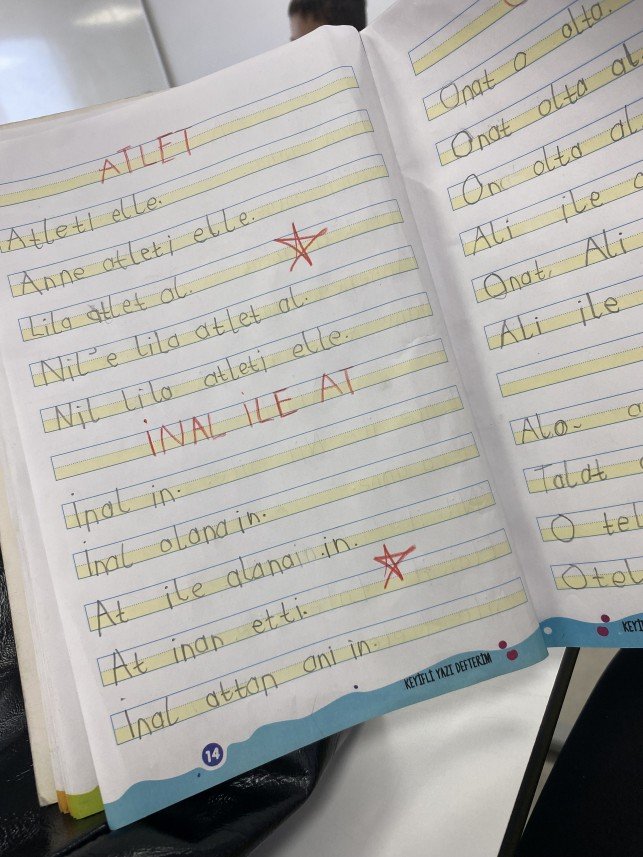 ATLET
Atleti elle.
Anne atleti elle.
Lila atlet al.
Nil'e lila atlet al.
Nil lila atleti elle.
İNAL İLE AT
İnal in.
İnal alana in.
At ile alana in.
At inan etti.
İnal attan ani in.
KEYİFLİ YAZI DEFTERİM
14
Onat o olta.
Onat olta al
On olta al
Ali ile
Onat, Ali
Ali ile
Ala-
Talat
O tel
Otel
KEYİ